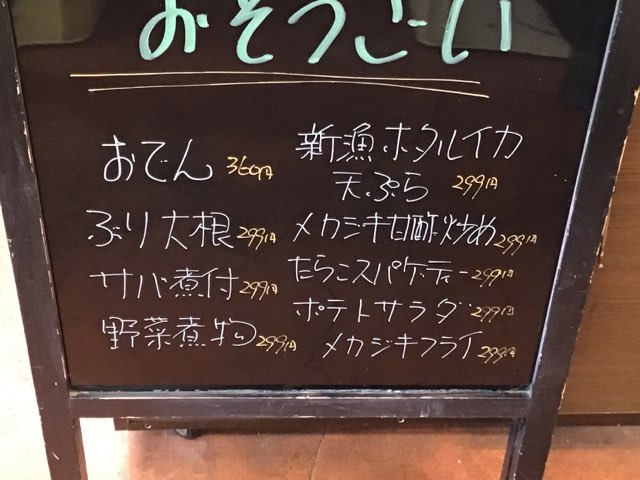 おそうざい
おでん 360円
ぶり大根 299円
サバ煮付 299円
野菜煮物 299円
新漁ホタルイカ
天ぷら 299円
メカジキ甘酢炒め 299円
たらこスパゲティー 299円
ポテトサラダ 299円
メカジキフライ 299円